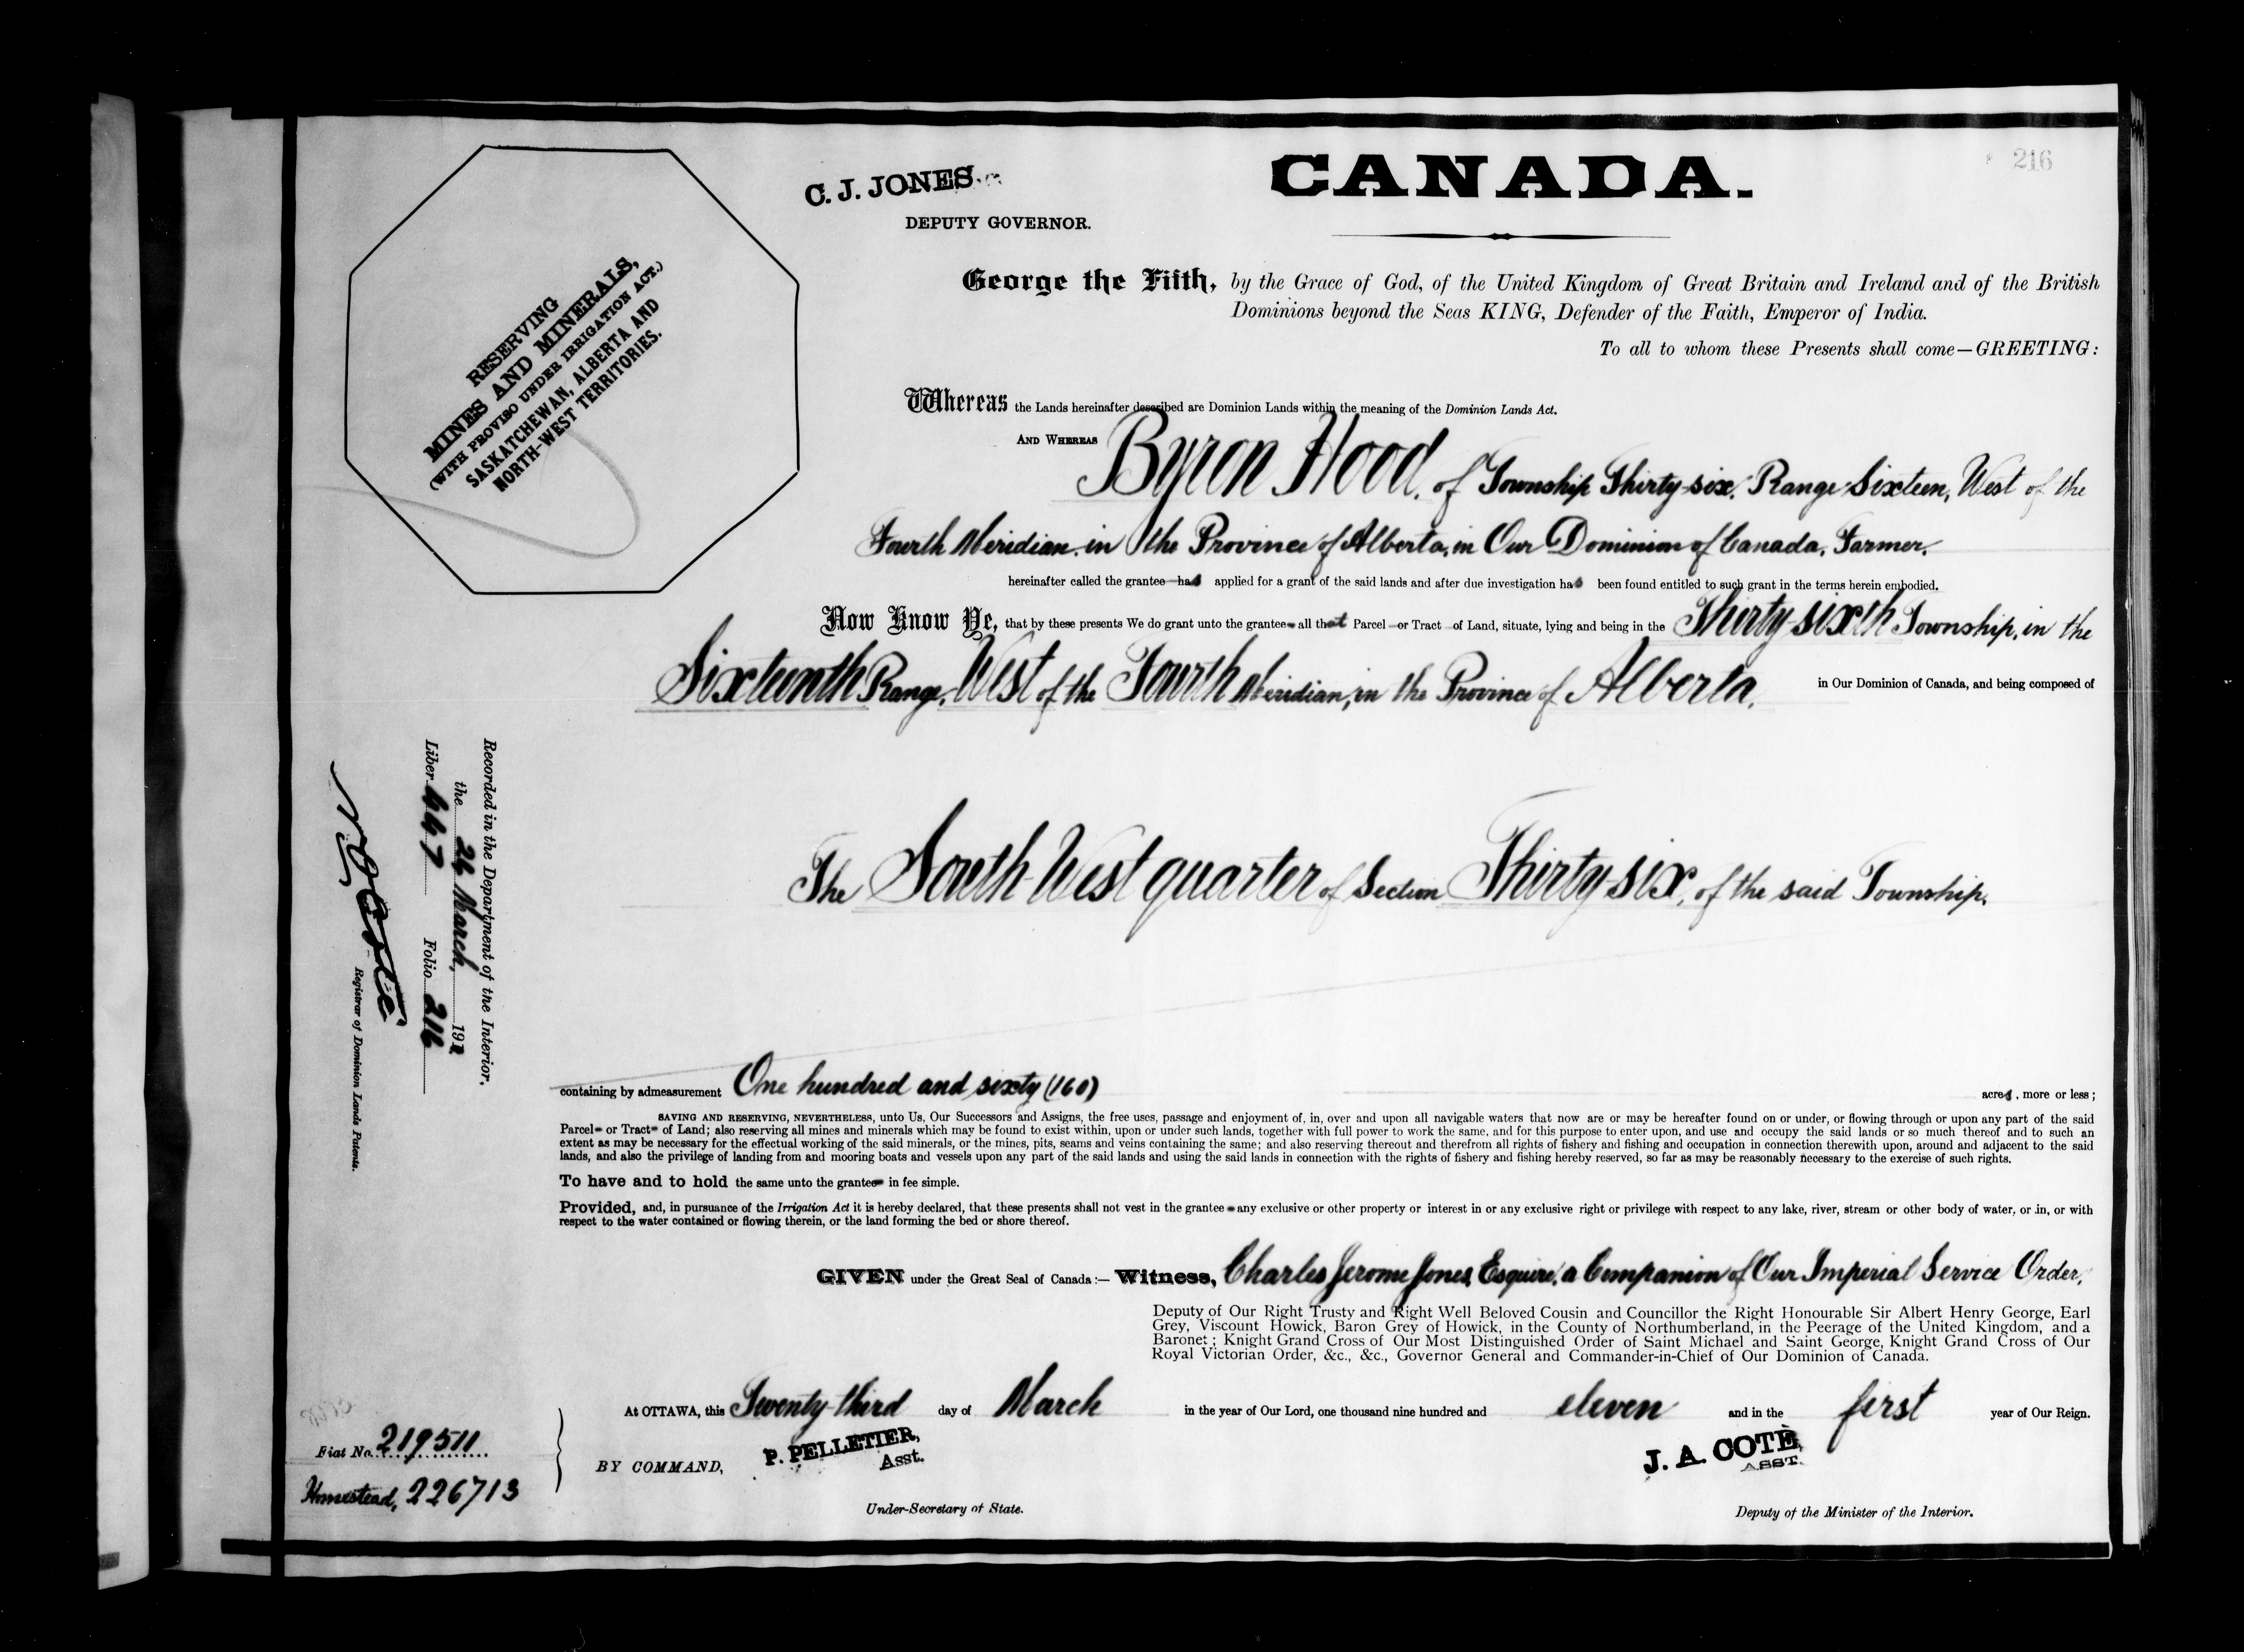 216
C. J. JONES
DEPUTY GOVERNOR.
CANADA.
RESERVING
MINES AND MINERALS,
(WITH PROVISO UNDER IRRIGATION ACT.)
SASKATCHEWAN, ALBERTA AND
NORTH-WEST TERRITORIES.
George the Fifth, by the Grace of God, of the United Kingdom of Great Britain and Ireland and of the British
Dominions beyond the Seas KING, Defender of the Faith, Emperor of India.
To all to whom these Presents shall come—GREETING:
Whereas the Lands hereinafter described are Dominion Lands within the meaning of the Dominion Lands Act.
AND WHEREAS Byron Hood, of Township Thirty-six, Range Sixteen, West of the
Fourth Meridian, in the Province of Alberta, in Our Dominion of Canada, Farmer,
hereinafter called the grantee has applied for a grant of the said lands and after due investigation has been found entitled to such grant in the terms herein embodied.
Now Know Ye, that by these presents We do grant unto the grantee all that Parcel or Tract of Land, situate, lying and being in the Thirty-sixth Township, in the
Sixteenth Range, West of the Fourth Meridian, in the Province of Alberta, in Our Dominion of Canada, and being composed of
The South West quarter of Section Thirty-six, of the said Township,
Recorded in the Department of the Interior,
the 24 March, 1911
Liber 667 Folio 216
N O Coté
Registrar of Dominion Lands Patents.
containing by admeasurement One hundred and sixty (160) acres, more or less;
SAVING AND RESERVING, NEVERTHELESS, unto Us, Our Successors and Assigns, the free uses, passage and enjoyment of, in, over and upon all navigable waters that now are or may be hereafter found on or under, or flowing through or upon any part of the said
Parcel or Tract of Land; also reserving all mines and minerals which may be found to exist within, upon or under such lands, together with full power to work the same, and for this purpose to enter upon, and use and occupy the said lands or so much thereof and to such an
extent as may be necessary for the effectual working of the said minerals, or the mines, pits, seams and veins containing the same; and also reserving thereout and therefrom all rights of fishery and fishing and occupation in connection therewith upon, around and adjacent to the said
lands, and also the privilege of landing from and mooring boats and vessels upon any part of the said lands and using the said lands in connection with the rights of fishery and fishing hereby reserved, so far as may be reasonably necessary to the exercise of such rights.
To have and to hold the same unto the grantee in fee simple.
Provided, and, in pursuance of the Irrigation Act it is hereby declared, that these presents shall not vest in the grantee any exclusive or other property or interest in or any exclusive right or privilege with respect to any lake, river, stream or other body of water, or in, or with
respect to the water contained or flowing therein, or the land forming the bed or shore thereof.
GIVEN under the Great Seal of Canada:— Witness, Charles Jerome Jones, Esquire, a Companion of Our Imperial Service Order,
Deputy of Our Right Trusty and Right Well Beloved Cousin and Councillor the Right Honourable Sir Albert Henry George, Earl
Grey, Viscount Howick, Baron Grey of Howick, in the County of Northumberland, in the Peerage of the United Kingdom, and a
Baronet; Knight Grand Cross of Our Most Distinguished Order of Saint Michael and Saint George, Knight Grand Cross of Our
Royal Victorian Order, &c., &c., Governor General and Commander-in-Chief of Our Dominion of Canada.
At OTTAWA, this Twenty-third day of March in the year of Our Lord, one thousand nine hundred and eleven and in the first year of Our Reign.
BY COMMAND,
P. PELLETIER,
Asst.
Under-Secretary of State.
J. A. COTÉ,
ASST.
Deputy of the Minister of the Interior.
Fiat No. 219511
Homestead, 226713